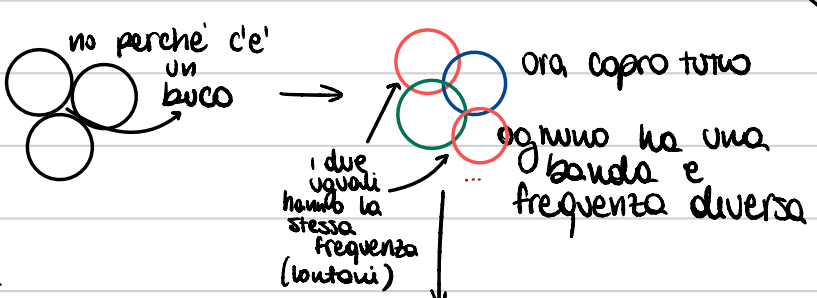 no perché c'e'
un
buco
ora copro tutto
ognuno ha una
banda e
frequenza diversa
i due
uguali
hanno la
stessa
frequenza
(lontani)
...